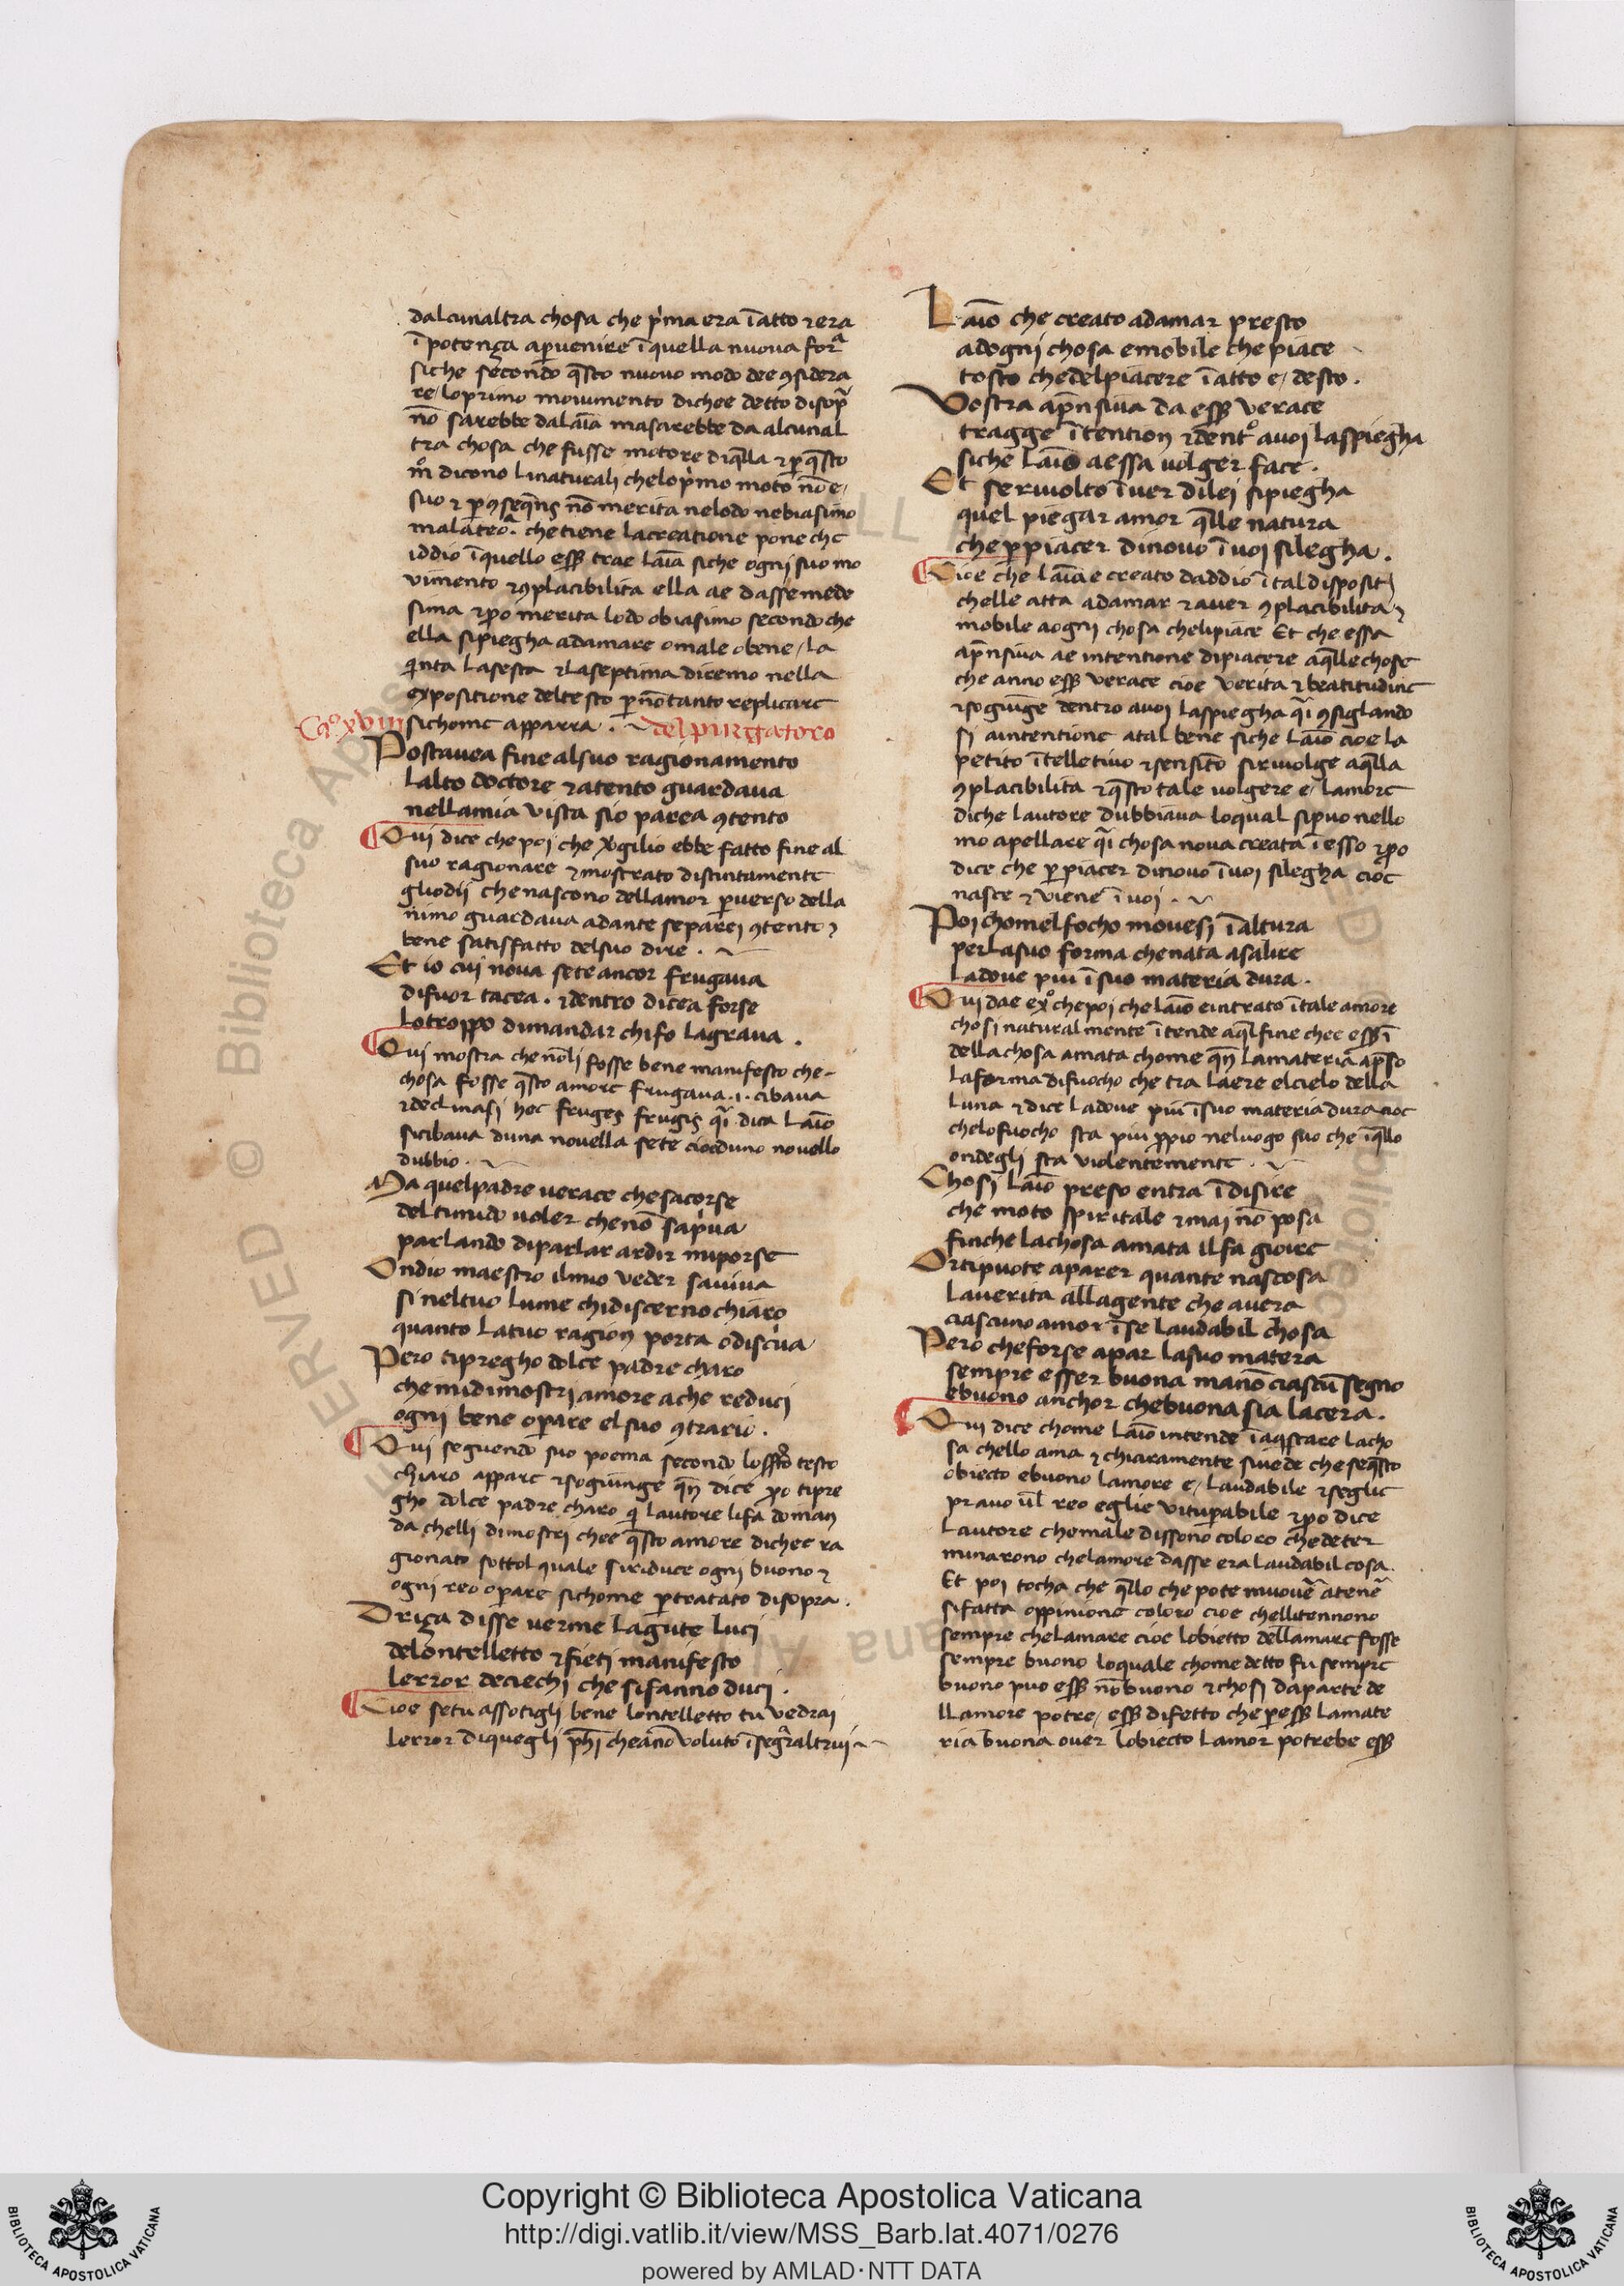 dalcunaltra chosa che p̍ma era ī atto ⁊ era
ī potenza aꝑuenire ī quella nuoua forᵃ
siche secondo q̄sto nuouo modo dee ꝯsidera
re / loprimo mouimento dichee detto disop̄
nō sarebbe dalaīa masarebbe da alcunal
tra chosa che fusse motore diq̄lla ⁊ ꝑ q̄sto
mº dicono linaturalj chelop̍mo moto nō e /
suo ⁊ ꝑ ꝯseq̄nς nō merita nelodo nebiasimo
malateoᵃ. chetiene lacreatione pone che
iddio ī quello eēꝫ trae laīa siche ognj suo mo
vimento ⁊ ꝯplacibilita ella ae dassemede
sima ⁊ ꝑo merita lodo obiasimo secondo che
ella sipiegha adamare omale obene / la
q̍nta lasesta ⁊ laseptima diremo nella
expositione deltesto ꝑ nō tanto replicare
Caº. xviij sichome apparra . del purgatoro
Postauea fine alsuo ragionamento
lalto doctore ⁊ atento guardaua
nellamia vista sio parea ꝯtento
Qui dice che poj che ṽgilio ebbe fatto fine al
suo ragionare ⁊ mostrato distintamente
gliodij che nascono dellamor ꝑuerso della
nimo guardaua adante separej ꝯtento ⁊
bene satisfatto delsuo dire .
Et io cuj nova sete ancor frugaua
difuor tacea . ⁊ dentro dicea forse
lotroppo dimandar chifo lagraua .
Qui mostra che nōlj fosse bene manifesto che
chosa fosse q̄sto amore frugaua .i. cibaua
⁊ declinasj hec fruges frugis q̄i dica laīo
sicibaua duna nouella sete cioeduno nouello
dubbio .
Ma quelpadre uerace chesacorse
deltimido uoler chenō sap̍ua
parlando diparlar ardir miporse
Ondio maestro ilmio veder sauiua
si neltuo lume chidiscerno chiaro
quanto latuo ragion porta odiscriua
Pero tipregho dolce padre charo
chemidimostrj amore ache reducj
ognj bene oꝑare elsuo ꝯtrario .
Qui seguendo suo poema secondo lostro testo
chiaro appare ⁊ sogiunge q̄n dice ꝑo tipre
gho dolce padre charo q̍ lautore lifa doman
da chelli dimostri chee q̄sto amore dichee ra
gionato sottol quale siriduce ognj buono ⁊
ognj reo oꝑare sichome ꝑtratato disopra .
Driza disse uerme lagute lucj
delontelletto ⁊ fietj manifesto
lerror deciechj che sifanno ducj .
Cioe setu assotigli bene lontelletto tu vedraj
lerror diquegli ph̄i cheāno voluto īsegᵃr altruj
Laīo che creato adamar presto
adognj chosa emobile che piace
tosto chedelpiacere ī atto e / desto .
Vostra ap̄nsiua da eēꝫ verace
tragge ītention ⁊ dentº auoj laspiegha
siche laīo aessa volger face .
Et se riuolto īuer dilej sipiegha
quel piegar amor q̄lle natura
che ꝑ piacer dinouo ī uoj silegha .
Cioe che laīa e creato daddio ī tal disposit
chelle atta adamar ⁊ auer ꝯplacibilita ⁊
mobile aognj chosa chelipiace Et che essa
ap̄nsiua ae intentione dipiacere aq̄lle chose
che anno eēꝫ verace cioe verita ⁊ beatitudine
⁊ sogiunge dentro auoj laspiegha q̄i ꝯsiglando
sj aintentione atal bene siche laīo cioe lo
petito ītelletiuo ⁊ sensitº siriuolge aq̄lla
ꝯplacibilita ⁊ q̄sto tale uolgere e / lamore
diche lautore dubbiaua loqual siꝑuo nello
mo apellare q̄i chosa noua creata ī esso ⁊ ꝑo
dice che ꝑ piacer dinouo ī uoj silegha cioe
nasce ⁊ viene ī uoj .
Poj chomelfocho mouesj ī altura
perlasuo forma chenata asalire
ladoue piu ī suo materia dura .
Qui dae exº chepoj che laīo eintrato ī tale amore
chosi naturalmente ī tende aq̄l fine chee eēꝫ ī
dellachosa amata chome q̄n lamateria ap̄so
laforma difuocho che tra laere elcielo della
luna ⁊ dice ladoue piu ī suo materia dura cioe
chelofuocho sta piu ꝓpio neluogo suo che ī q̄llo
ondeglj sta violentemente .
Chosj laīo preso entra ī disire
che moto spiritale ⁊ mai nō posa
finche lachosa amata ilfa gioire
Or tipuote aparer quante nascosa
lauerita allagente che auera
ciascuno amor ī se laudabil chosa
Pero cheforse apar lasuo matera
sempre esser buona manō ciascū segno
ebuono anchor chebuona sia lacera .
Qui dice chome laīo intende ī aq̍stare lacho
sa chello ama ⁊ chiaramente siuede cheseq̄sto
obiecto ebuono lamore e / laudabile ⁊ seglie
prauo ūl reo eglie vituꝑabile ⁊ ꝑo dice
lautore chemale dissono coloro chedeter
minarono chelamore dasse era laudabil cosa .
Et poj tocha che q̄llo che pote muoue᷑ atene᷑
sifatta oppinione coloro cioe chellitennono
sempre chelamare cioe lobietto dellamare fosse
sempre buono loquale chome detto fu sempre
buono puo eēꝫ nōbuono ⁊ chosj daparte de
llamore potre / eēꝫ difetto che ꝑ eēꝫ lamate
ria buona ouer lobiecto lamor potrebe eēꝫ
Copyright © Biblioteca Apostolica Vaticana
http://digi.vatlib.it/view/MSS_Barb.lat.4071/0276
powered by AMLAD·NTT DATA
BIBLIOTECA APOSTOLICA VATICANA
BIBLIOTECA APOSTOLICA VATICANA